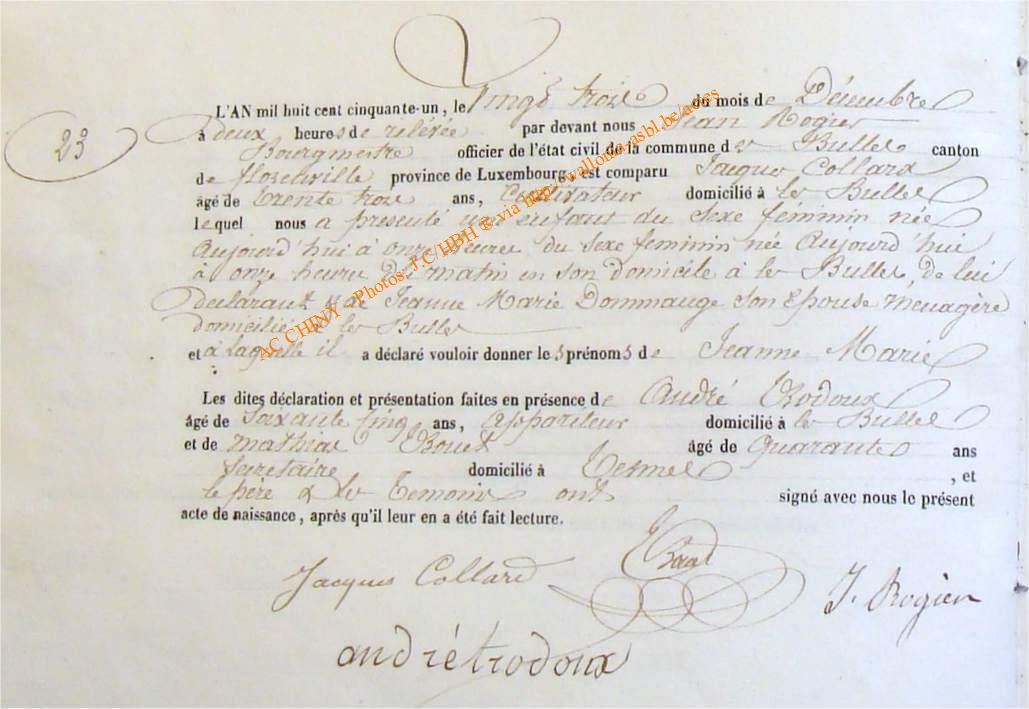 23
L'AN mil huit cent cinquante-un, le vingt trois du mois de Décembre
à deux heures de relévée par devant nous Jean Rogier
Bourgmestre officier de l'état civil de la commune des Bulles canton
de florenville province de Luxembourg, est comparu Jacques Collard
âgé de trente trois ans, Cultivateur domicilié à les Bulles
lequel nous a presenté un enfant du Sexe féminin née
Aujourd'hui à onze heures du sexe feminin née Aujourd'hui
à onze heures du matin en son domicile à les Bulles, de lui
declarant & de Jeanne Marie Dommange son Epouse ménagère
domicilié à les Bulles
et à laquelle il a déclaré vouloir donner les prénoms de Jeanne Marie
Les dites déclaration et présentation faites en présence de André Trodoux
âgé de Soixante Cinq ans, Appariteur domicilié à les Bulles
et de mathias âgé de Quarante ans
Secretaire domicilié à Termes, et
le père & les temoins ont signé avec nous le présent
acte de naissance, après qu'il leur en a été fait lecture.
Jacques Collard
J. Rogier
andrétrodoux
AC CHINY - Photos: J.C/HBH ® via http://wallonia-asbl.be/actes